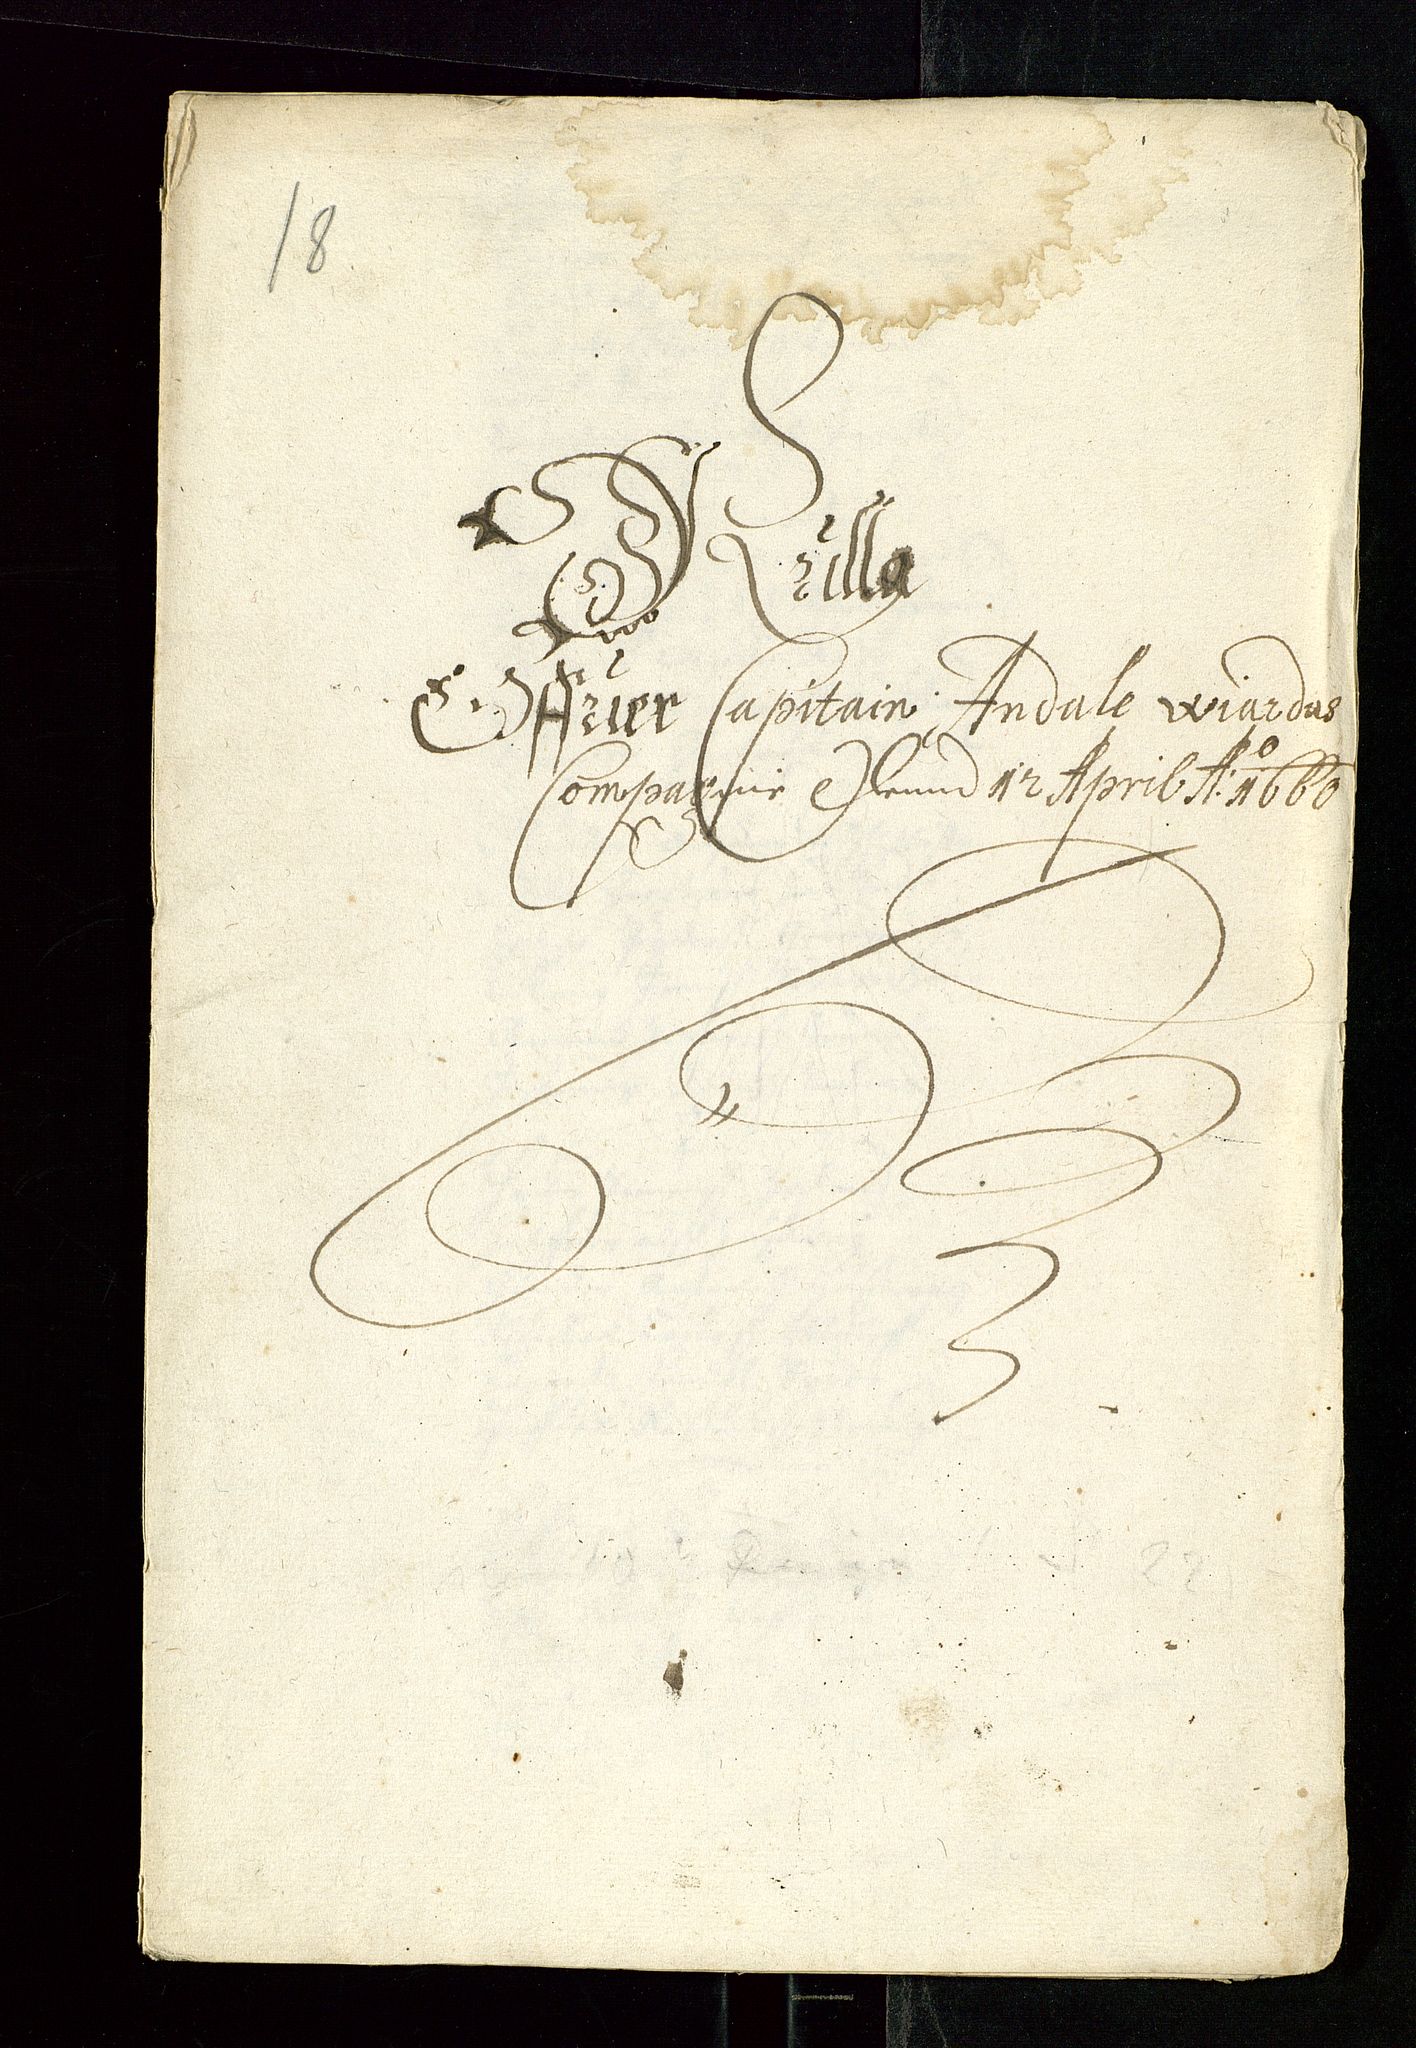 18
Rulla
Offuer Capitain Andale wiardas
Compagnie d 12 April Ao: 1660